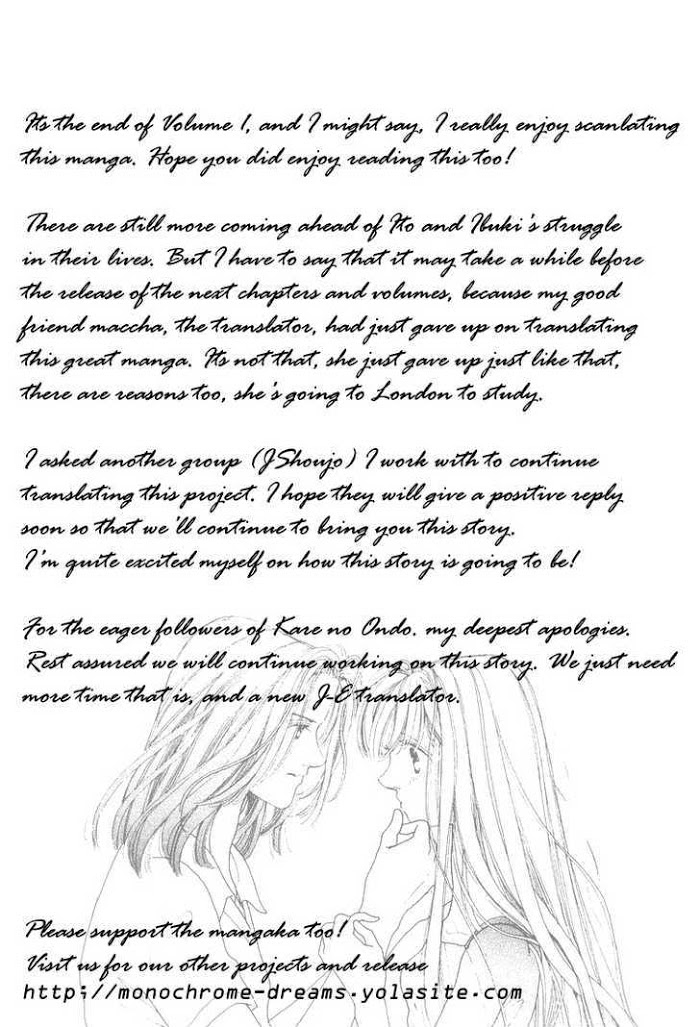 Its the end of Volume 1, and I might say, I really enjoy scanlating
this manga. Hope you did enjoy reading this too!
There are still more coming ahead of Ito and Ibuki's struggle
in their lives. But I have to say that it may take a while before
the release of the next chapters and volumes, because my good
friend maccha, the translator, had just gave up on translating
this great manga. Its not that, she just gave up just like that,
there are reasons too, she's going to London to study.
I asked another group (JShoujo) I work with to continue
translating this project. I hope they will give a positive reply
soon so that we'll continue to bring you this story.
I'm quite excited myself on how this story is going to be!
For the eager followers of Kare no Ondo. my deepest apologies.
Rest assured we will continue working on this story. We just need
more time that is, and a new J-E translator.
Please support the mangaka too!
Visit us for our other projects and release
http://monochrome-dreams.yolasite.com